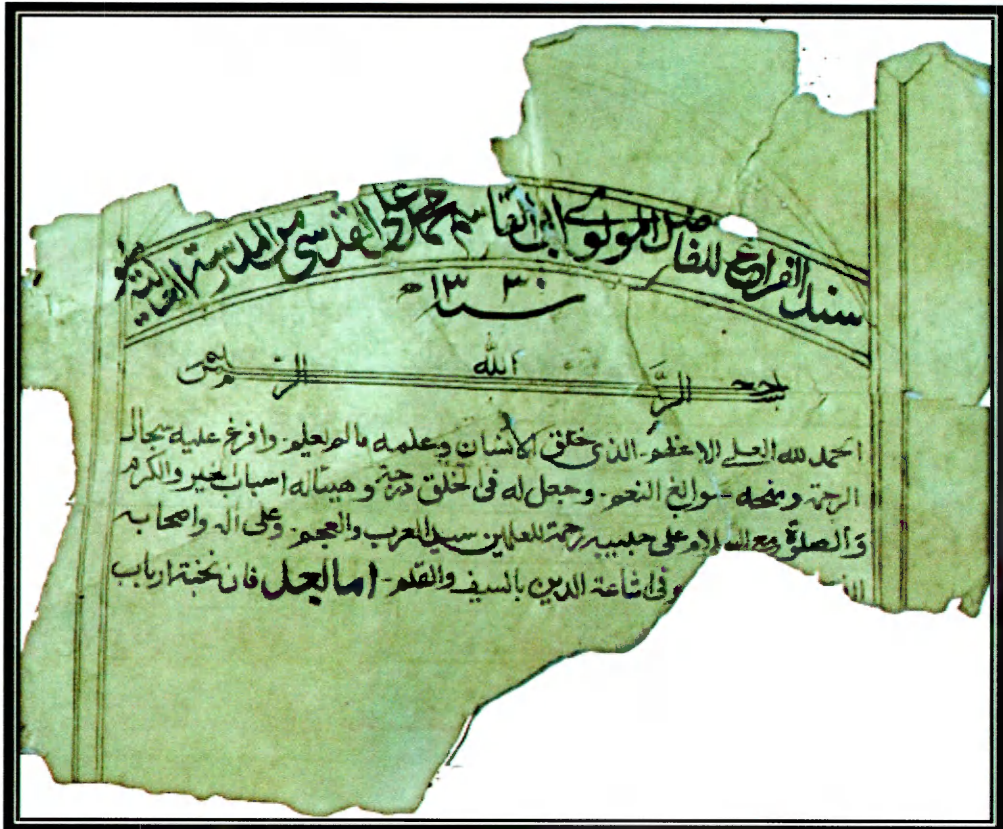 سند الفراغ للفاضل المولوي ابى القاسم محمد على القدسى من المدرسة العربية
سنه ١٣٣٠ھ
بسم الله الرحمن الرحيم
الحمد لله العلى الاعظم. الذى خلق الانسان وعلمه مالم يعلم. وافرغ عليه سجال
الرحمة ومنحه سوابغ النعم. وجعل له فى الخلق درجة وهيئاله اسباب الخير والكرم
والصلوة مع السلام على حبيبه رحمة للعلمين سيد العرب والعجم. وعلى اله واصحابه
وفى اشاعة الدين بالسيف والقلم. اما بعد فان نخبة ارباب